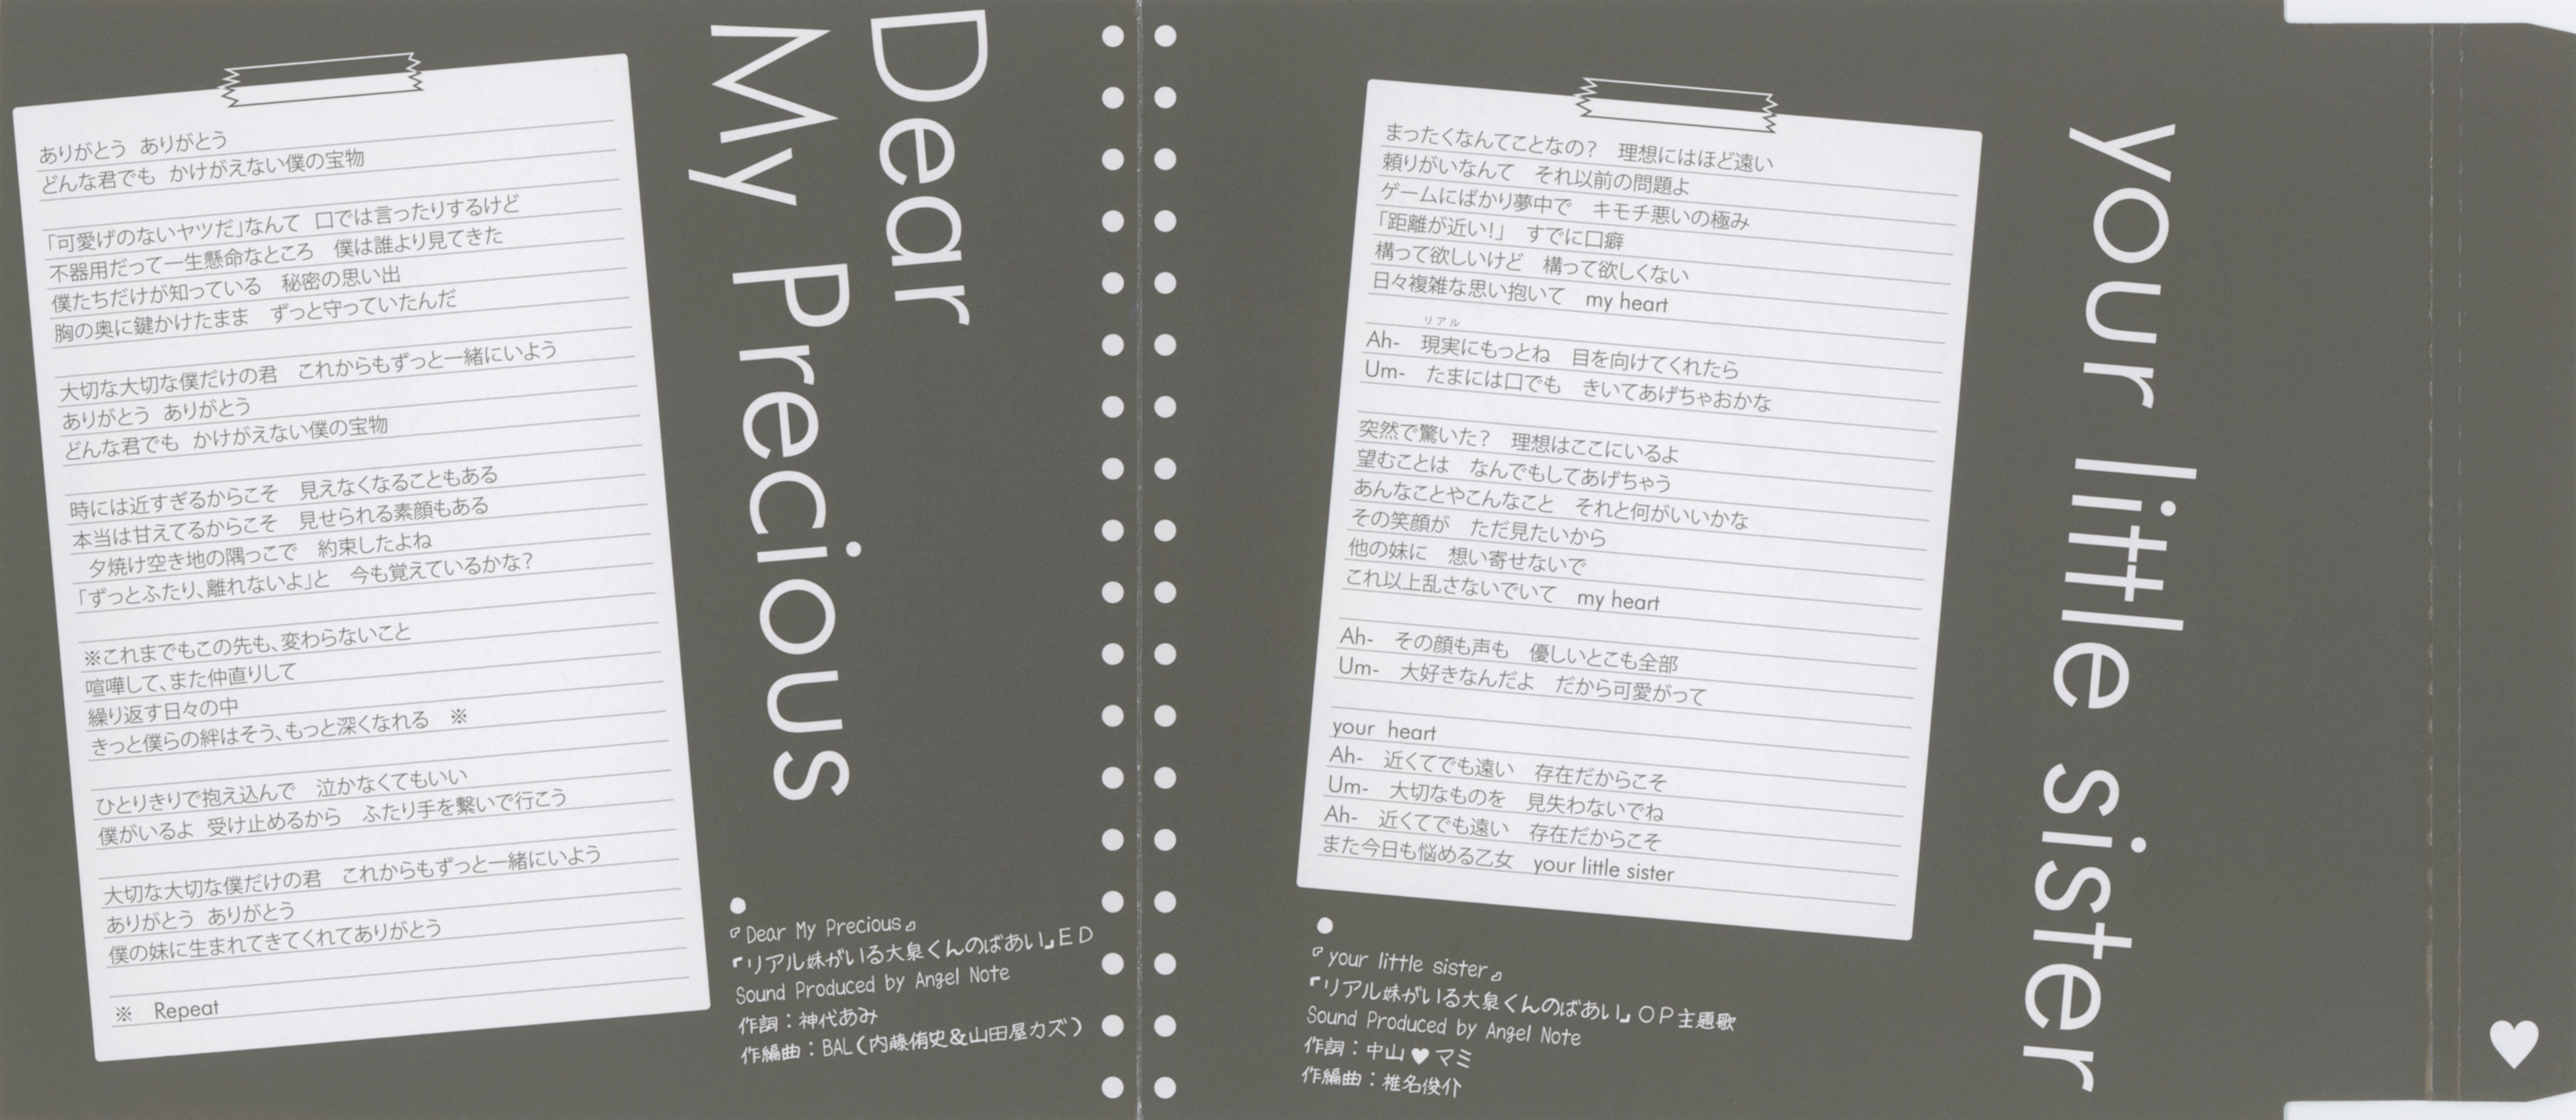 Dear
My Precious
ありがとう ありがとう
どんな君でも かけがえない僕の宝物
「可愛げのないヤツだ」なんて 口では言ったりするけど
不器用だって一生懸命なところ 僕は誰より見てきた
僕たちだけが知っている 秘密の思い出
胸の奥に鍵かけたまま ずっと守っていたんだ
大切な大切な僕だけの君 これからもずっと一緒にいよう
ありがとう ありがとう
どんな君でも かけがえない僕の宝物
時には近すぎるからこそ 見えなくなることもある
本当は甘えてるからこそ 見せられる素顔もある
夕焼け空き地の隅っこで 約束したよね
「ずっとふたり、離れないよ」と 今も覚えているかな?
※これまでもこの先も、変わらないこと
喧嘩して、また仲直りして
繰り返す日々の中
きっと僕らの絆はそう、もっと深くなれる ※
ひとりきりで抱え込んで 泣かなくてもいい
僕がいるよ 受け止めるから ふたり手を繋いで行こう
大切な大切な僕だけの君 これからもずっと一緒にいよう
ありがとう ありがとう
僕の妹に生まれてきてくれてありがとう
※ Repeat
『Dear My Precious』
「リアル妹がいる大泉くんのばあい」ED
Sound Produced by Angel Note
作詞:神代あみ
作編曲:BAL(内藤侑史&山田屋カズ)
your little sister
まったくなんてことなの? 理想にはほど遠い
頼りがいなんて それ以前の問題よ
ゲームにばかり夢中で キモチ悪いの極み
「距離が近い!」 すでに口癖
構って欲しいけど 構って欲しくない
日々複雑な思い抱いて my heart
リアル
Ah- 現実にもっとね 目を向けてくれたら
Um- たまには口でも きいてあげちゃおかな
突然で驚いた? 理想はここにいるよ
望むことは なんでもしてあげちゃう
あんなことやこんなこと それと何がいいかな
その笑顔が ただ見たいから
他の妹に 想い寄せないで
これ以上乱さないでいて my heart
Ah- その顔も声も 優しいとこも全部
Um- 大好きなんだよ だから可愛がって
your heart
Ah- 近くてでも遠い 存在だからこそ
Um- 大切なものを 見失わないでね
Ah- 近くてでも遠い 存在だからこそ
また今日も悩める乙女 your little sister
『your little sister』
「リアル妹がいる大泉くんのばあい」OP主題歌
Sound Produced by Angel Note
作詞:中山♥マミ
作編曲:椎名俊介